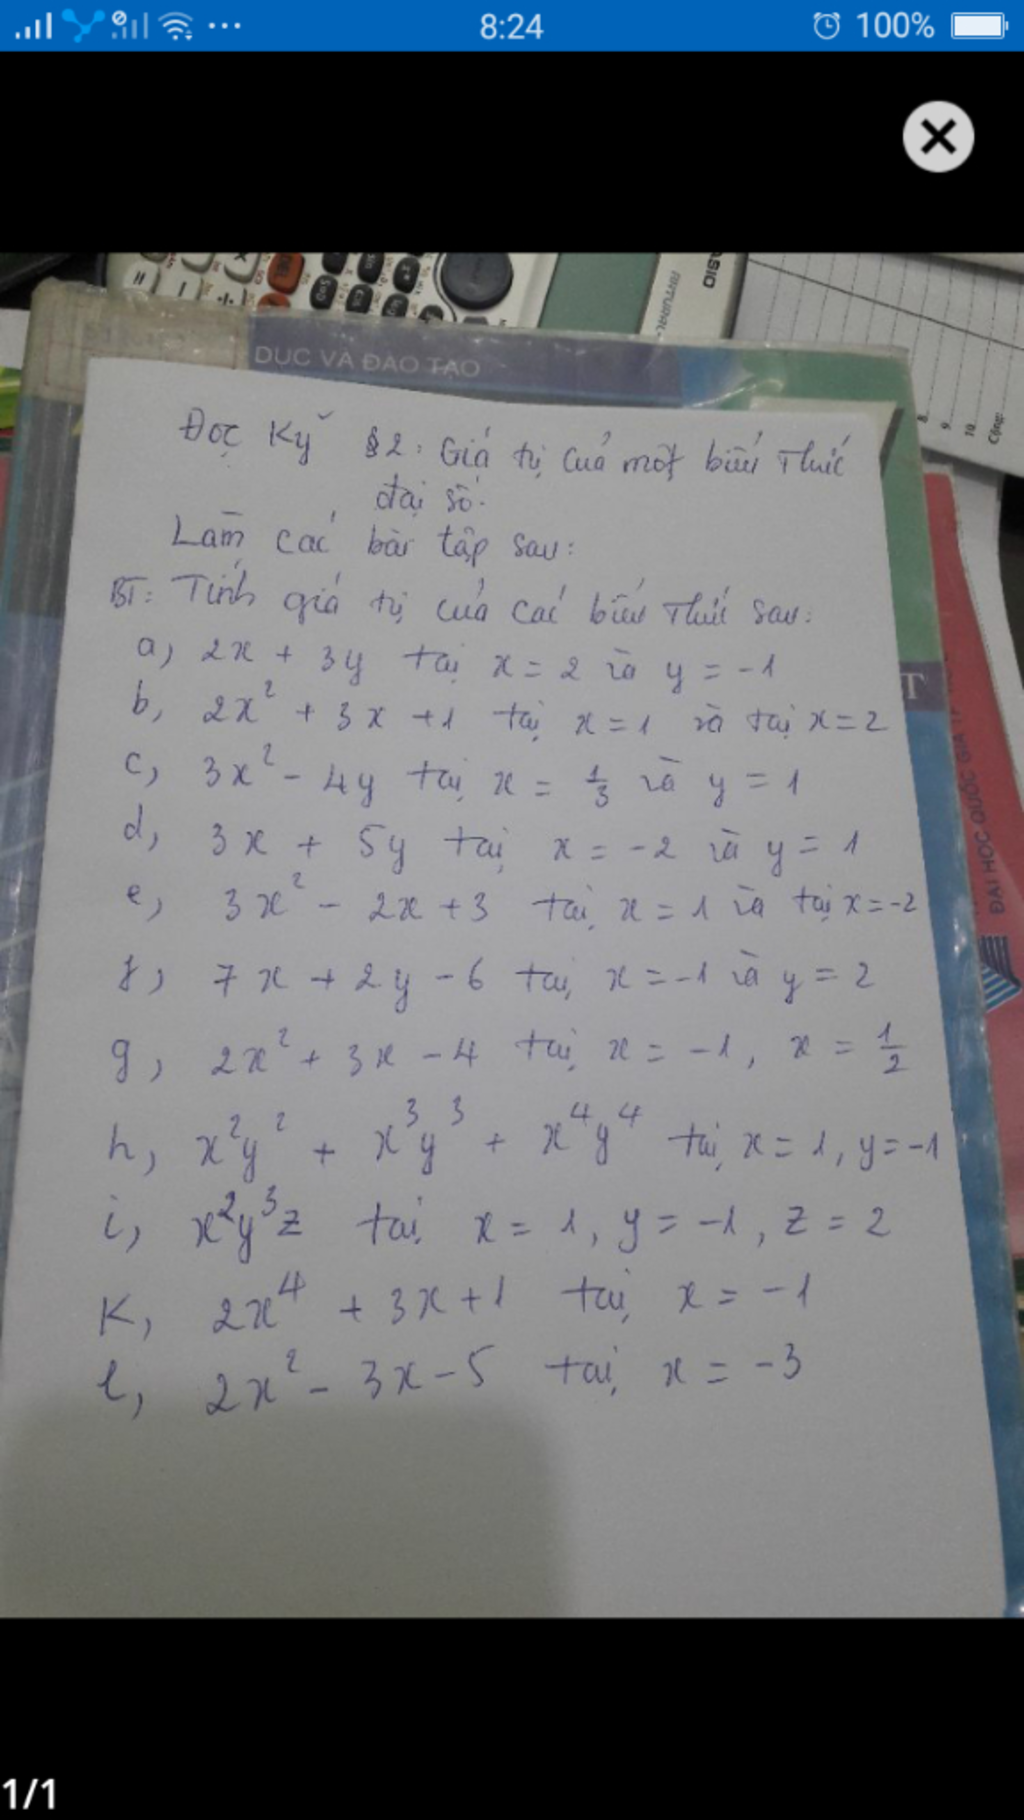 8:24
100%
DỤC VÀ ĐÀO TẠO
ASIO
NATURAL-
Đọc kỹ §2: Giá trị của một biểu thức
đại số.
Làm các bài tập sau:
BT: Tính giá trị của các biểu thức sau:
a, 2x + 3y tại x = 2 và y = -1
b, 2x² + 3x + 1 tại x = 1 và tại x = 2
c, 3x² - 4y tại x = 1/3 và y = 1
d, 3x + 5y tại x = -2 và y = 1
e, 3x² - 2x + 3 tại x = 1 và tại x = -2
f, 7x + 2y - 6 tại x = -1 và y = 2
g, 2x² + 3x - 4 tại x = -1, x = 1/2
h, x²y² + x³y³ + x⁴y⁴ tại x = 1, y = -1
i, x²y³z tại x = 1, y = -1, z = 2
K, 2x⁴ + 3x + 1 tại x = -1
l, 2x² - 3x - 5 tại x = -3
8.
9.
10.
Cộng:
T
ĐẠI HỌC QUỐC GIA
1/1